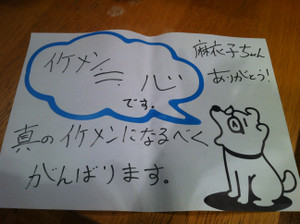 イケメン三心
です。
麻衣子ちゃん
ありがとう!
真のイケメンになるべく
がんばります。